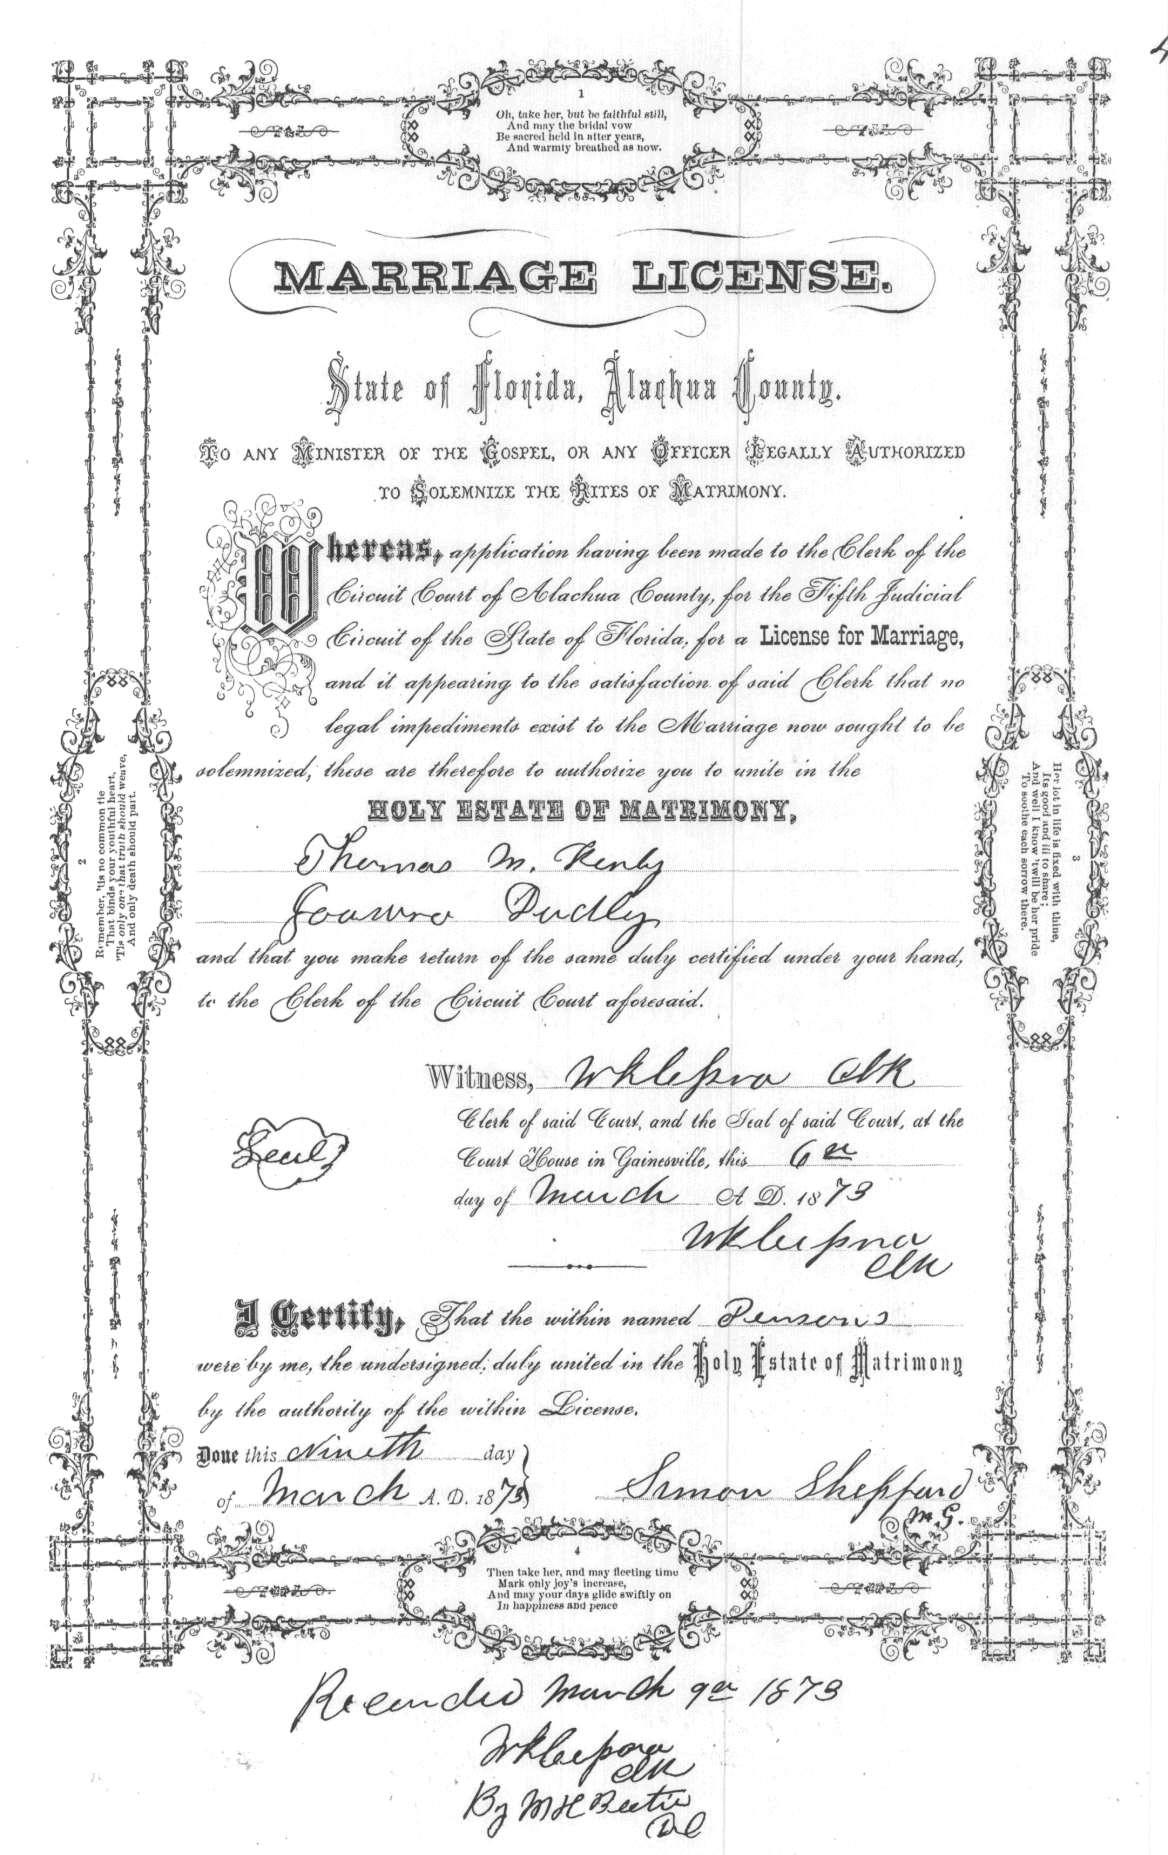 1
Oh, take her, but be faithful still,
And may the bridal vow
Be sacred held in after years,
And warmly breathed as now.
MARRIAGE LICENSE.
State of Florida, Alachua County.
TO ANY MINISTER OF THE GOSPEL, OR ANY OFFICER LEGALLY AUTHORIZED
TO SOLEMNIZE THE RITES OF MATRIMONY.
Whereas, application having been made to the Clerk of the
Circuit Court of Alachua County, for the Fifth Judicial
Circuit of the State of Florida, for a License for Marriage,
and it appearing to the satisfaction of said Clerk that no
legal impediments exist to the Marriage now sought to be
solemnized; these are therefore to authorize you to unite in the
HOLY ESTATE OF MATRIMONY,
Thomas M.
Dudly
and that you make return of the same duly certified under your hand,
to the Clerk of the Circuit Court aforesaid.
Witness, Clk
Clerk of said Court, and the Seal of said Court, at the
Seal
Court House in Gainesville, this 6th
day of March A. D. 1873
Clk
I Certify, That the within named Persons
were by me, the undersigned, duly united in the Holy Estate of Matrimony
by the authority of the within License.
Done this Nineth day
of March A. D. 1873
Simon Sheppard
M. G.
2
Remember, 'tis no common tie
That binds your youthful heart,
'Tis only one that truth should weave,
And only death should part.
3
Her lot in life is fixed with thine,
Its good and ill to share;
And well I know 'twill be her pride
To soothe each sorrow there.
4
Then take her, and may fleeting time
Mark only joy's increase,
And may your days glide swiftly on
In happiness and peace
Recorded March 9th 1873
Clk
By M H
DC